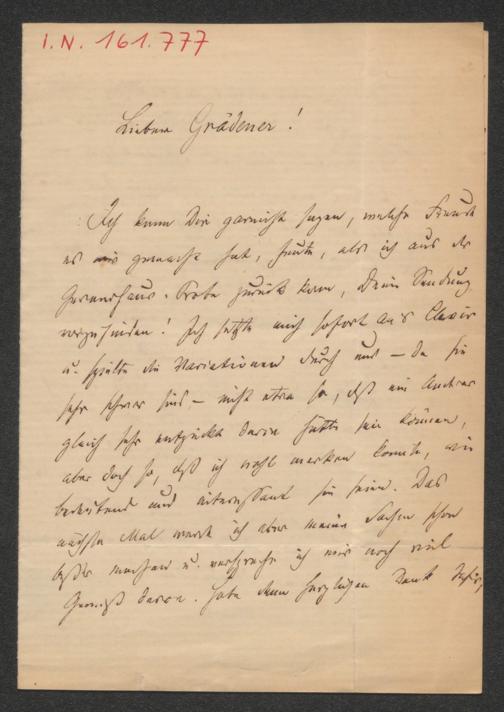 I. N. 161.777
Lieber Grädener!
Ich kann Dir garnicht sagen, welche Freude
es mir gemacht hat, heute, als ich aus der
Herrenhaus-Probe zurück kam, Deine Sendung
vorzufinden! Ich setzte mich sofort an's Clavier
u. spielte die Variationen durch und – da sie
sehr schwer sind – nicht etwa so, daß ein Anderer
gleich sehr entzückt davon hätte sein können,
aber doch so, daß ich wohl merken konnte, wie
bedeutend und interessant sie seien. Das
nächste Mal werde ich aber meine Sachen schon
besser machen u. verspreche ich mir noch viel
Genuß davon. Habe denn herzlichen Dank dafür,